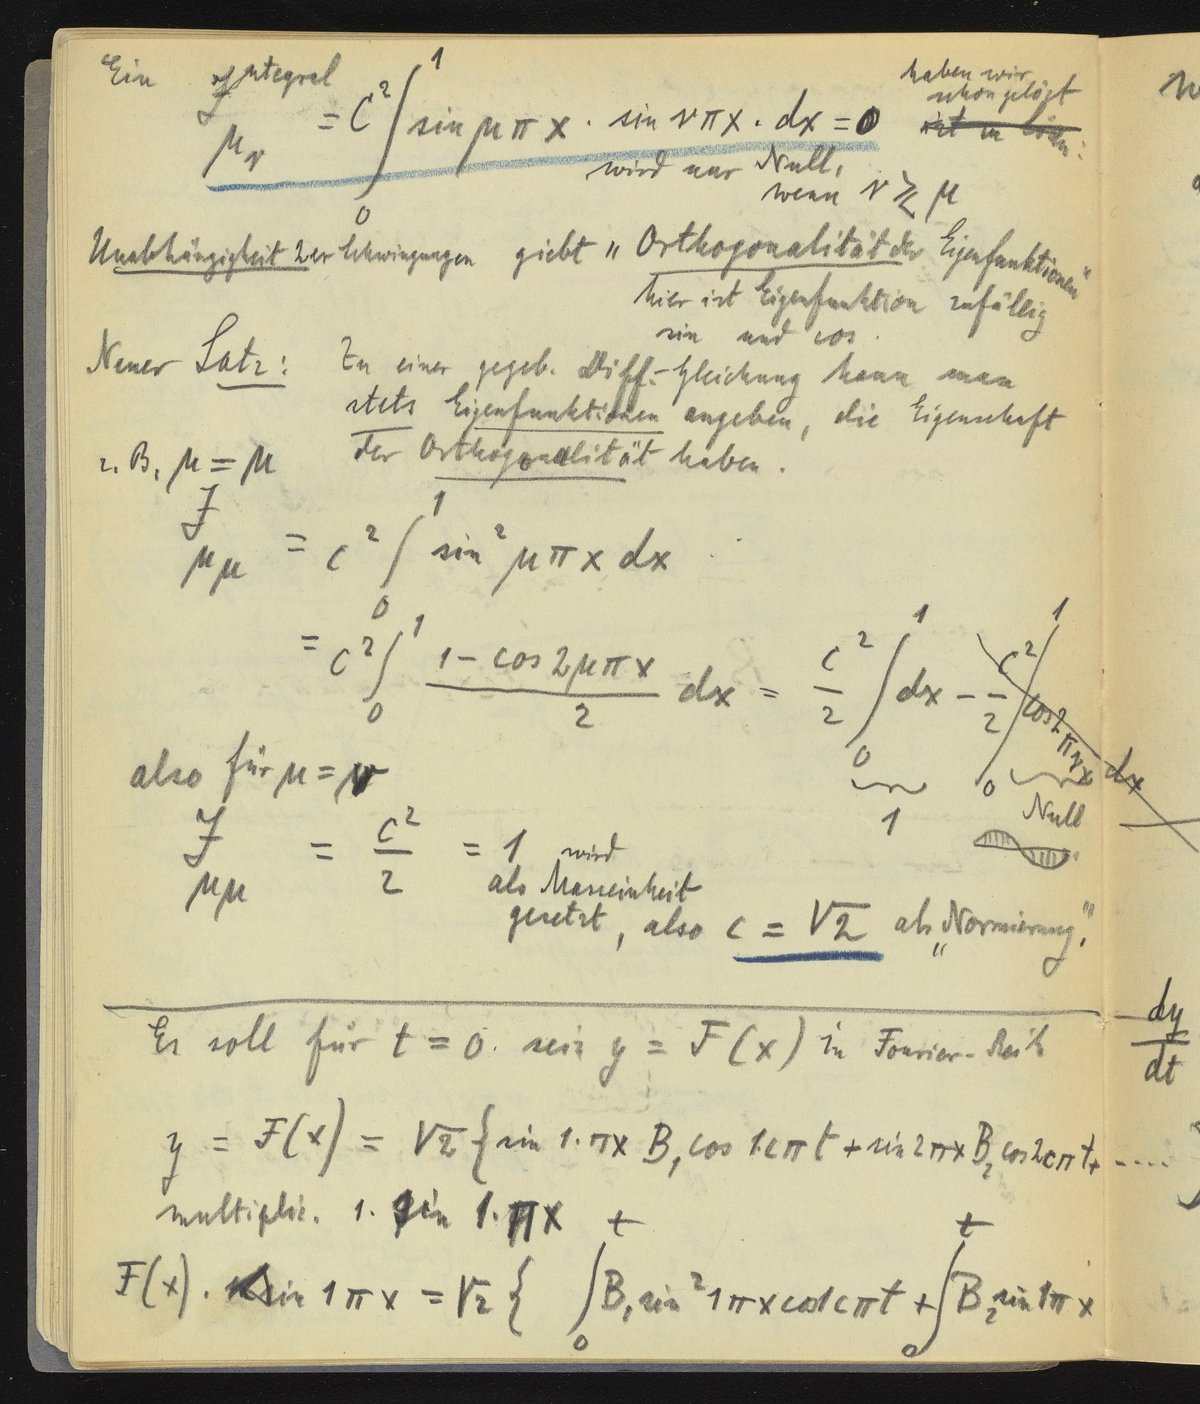 Ein Integral
J μν = C² ∫₀¹ sin μπx · sin νπx · dx = 0 haben wir schon gelöst
wird nur Null,
wenn ν ≷ μ
Unabhängigkeit 2er Schwingungen giebt "Orthogonalität der Eigenfunktionen"
hier ist Eigenfunktion zufällig
sin und cos.
Neuer Satz: Zu einer gegeb. Diff.-Gleichung kann man
stets Eigenfunktionen angeben, die Eigenschaft
der Orthogonalität haben.
z.B. μ = μ
J μμ = c² ∫₀¹ sin² μπx dx
= c² ∫₀¹ (1 - cos 2μπx)/2 dx = c²/2 ∫₀¹ dx - c²/2 ∫₀¹ cos 2πμx dx
1 Null
also für μ = ν
J μμ = c²/2 = 1 wird
als Masseinheit
gesetzt, also c = √2 als „Normierung".
Es soll für t = 0. sein y = F(x) in Fourier-Reih
y = F(x) = √2 { sin 1·πx B₁ cos 1cπt + sin 2πx B₂ cos 2cπt + ....
multiplic. 1. sin 1·πx
F(x) · sin 1πx = √2 { ∫₀ᵗ B₁ sin² 1πx cos 1cπt + ∫₀ᵗ B₂ sin 1πx
dy/dt